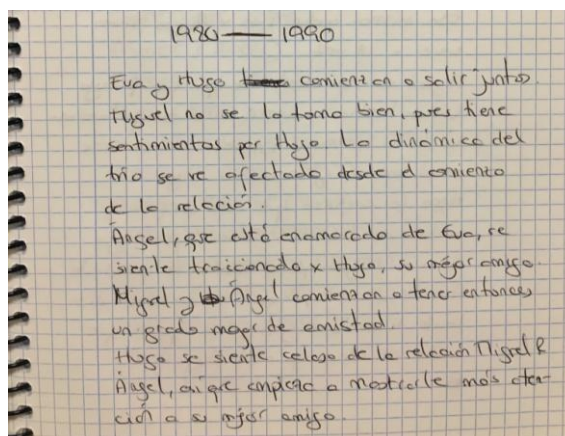 1980 — 1990
Eva y Hugo comienzan a salir juntos.
Miguel no se lo toma bien, pues tiene
sentimientos por Hugo. La dinámica del
trío se ve afectada desde el comienzo
de la relación.
Ángel, que está enamorado de Eva, se
siente traicionado x Hugo, su mejor amigo.
Miguel y Ángel comienzan a tener entonces
un grado mayor de amistad.
Hugo se siente celoso de la relación Miguel &
Ángel, así que empieza a mostrarle más aten-
ción a su mejor amigo.